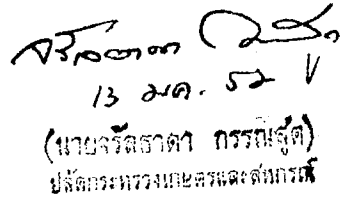 13 มค. 52
(นายจรัลธาดา กรรณสูต)
ปลัดกระทรวงเกษตรและสหกรณ์